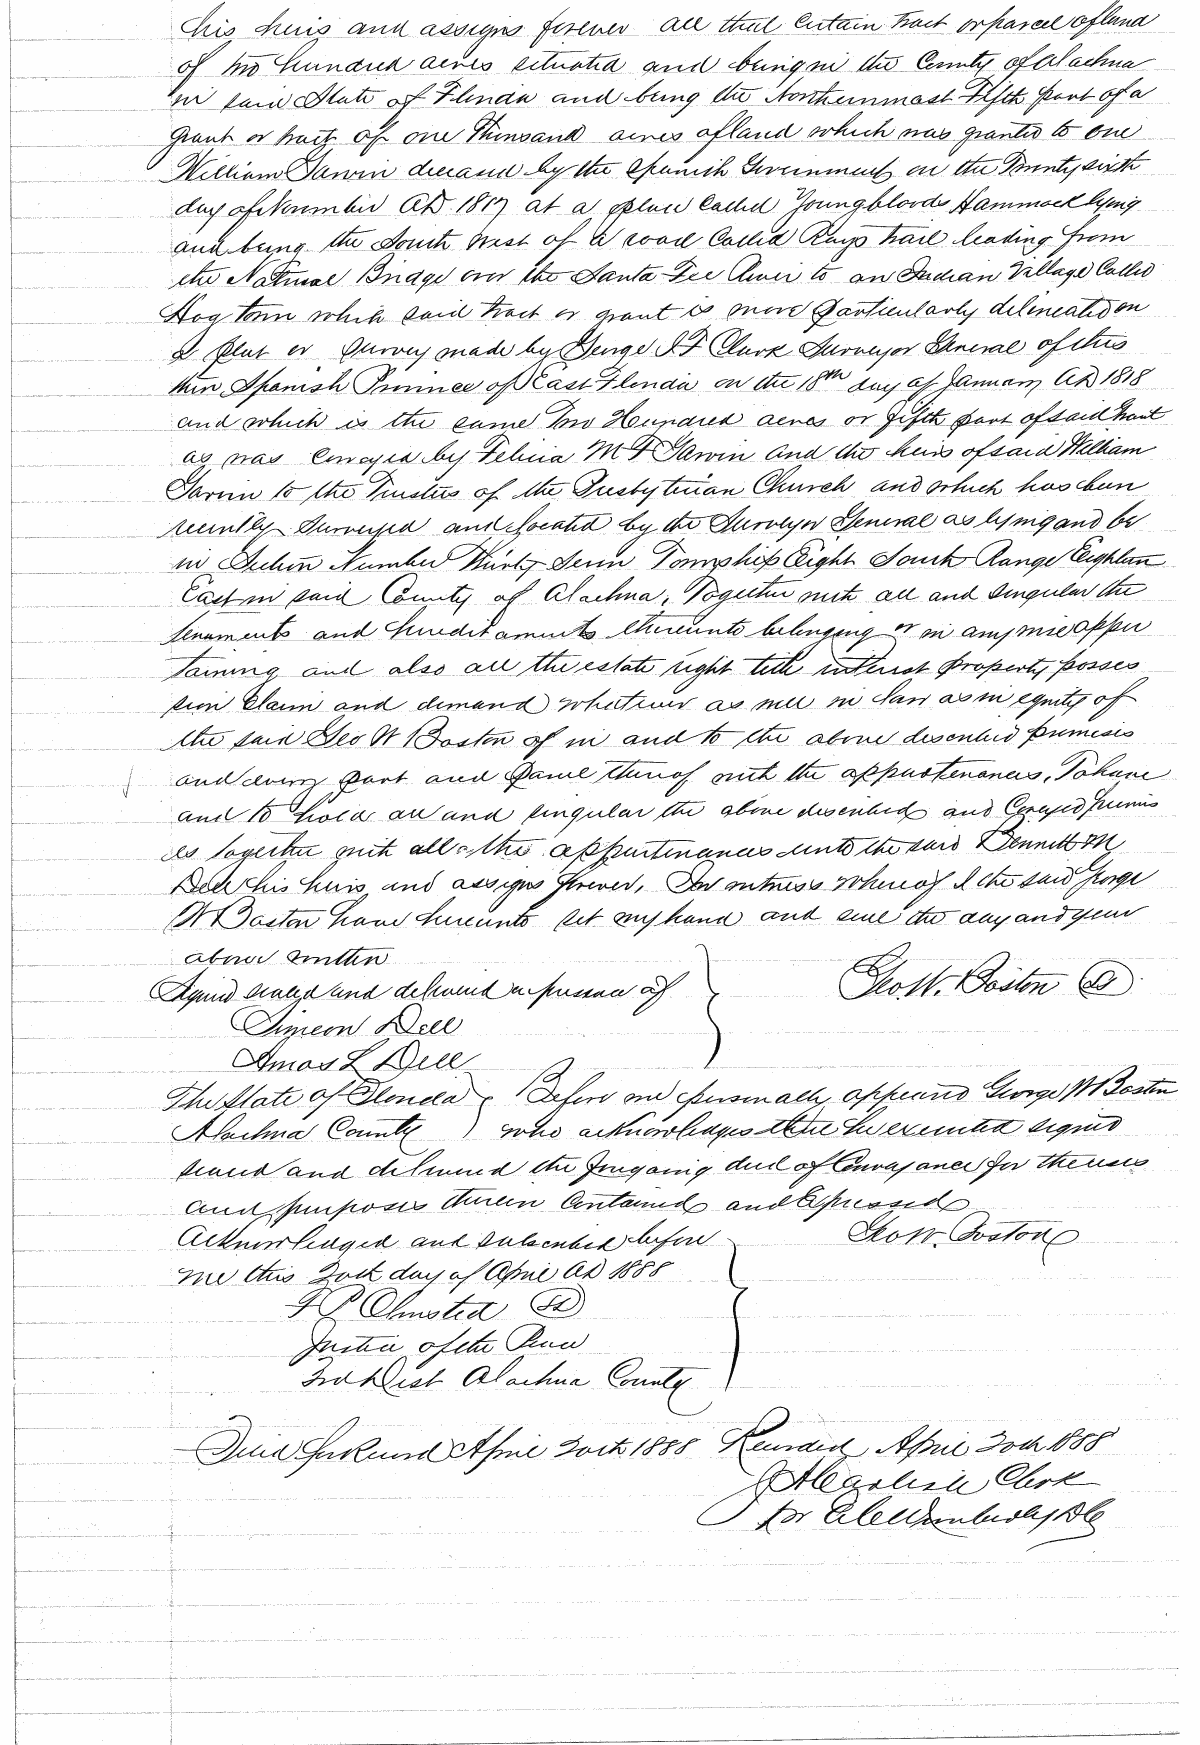 his heirs and assigns forever all that certain tract or parcel of land
of two hundred acres situated and being in the County of Alachua
in said State of Florida and being the Northernmost Fifth part of a
grant or tract of one Thousand acres of land which was granted to one
William Garvin deceased by the Spanish Government on the Twenty sixth
day of November AD 1817 at a place called Youngbloods Hammock lying
and being the South West of a road Called Rays trail leading from
the Natural Bridge over the Santa Fee River to an Indian Village Called
Hog town which said tract or grant is more particularly delineated on
a plat or Survey made by George J F Clark Surveyor General of this
then Spanish Province of East Florida on the 18th day of January AD 1818
and which is the same Two Hundred acres or fifth part of said tract
as was conveyed by Felicia M F Garvin and the heirs of said William
Garvin to the Trustees of the Presbyterian Church and which has been
recently Surveyed and located by the Surveyor General as lying and be
in Section Number Thirty Seven Township Eight South Range Eighteen
East in said County of Alachua, Together with all and singular the
tenaments and hereditaments thereunto belonging or in any wise apper
taining and also all the estate right title interest property posses
sion Claim and demand whatever as well in law as in equity of
the said Geo W Boston of in and to the above described premises
and every part and parcel thereof with the appurtenances, To have
and to hold all and singular the above described and Conveyed premis
es together with all the appurtenances unto the said Bennett M
Dell his heirs and assigns forever, In witness whereof I the said George
W Boston have hereunto set my hand and seal the day and year
above written
Signed sealed and delivered in presence of Geo. W. Boston
Simeon Dell
Amos L Dell
The State of Florida Before me personally appeared George W Boston
Alachua County ) who acknowledges that he executed signed
sealed and delivered the foregoing deed of Conveyance for the uses
and purposes therein Contained and Expressed
Acknowledged and subscribed before Geo W. Boston
me this 20th day of April AD 1888
F P Olmsted
Justice of the Peace
3rd Dist Alachua County
Filed for Record April 20th 1888 Recorded April 20th 1888
Clerk
for